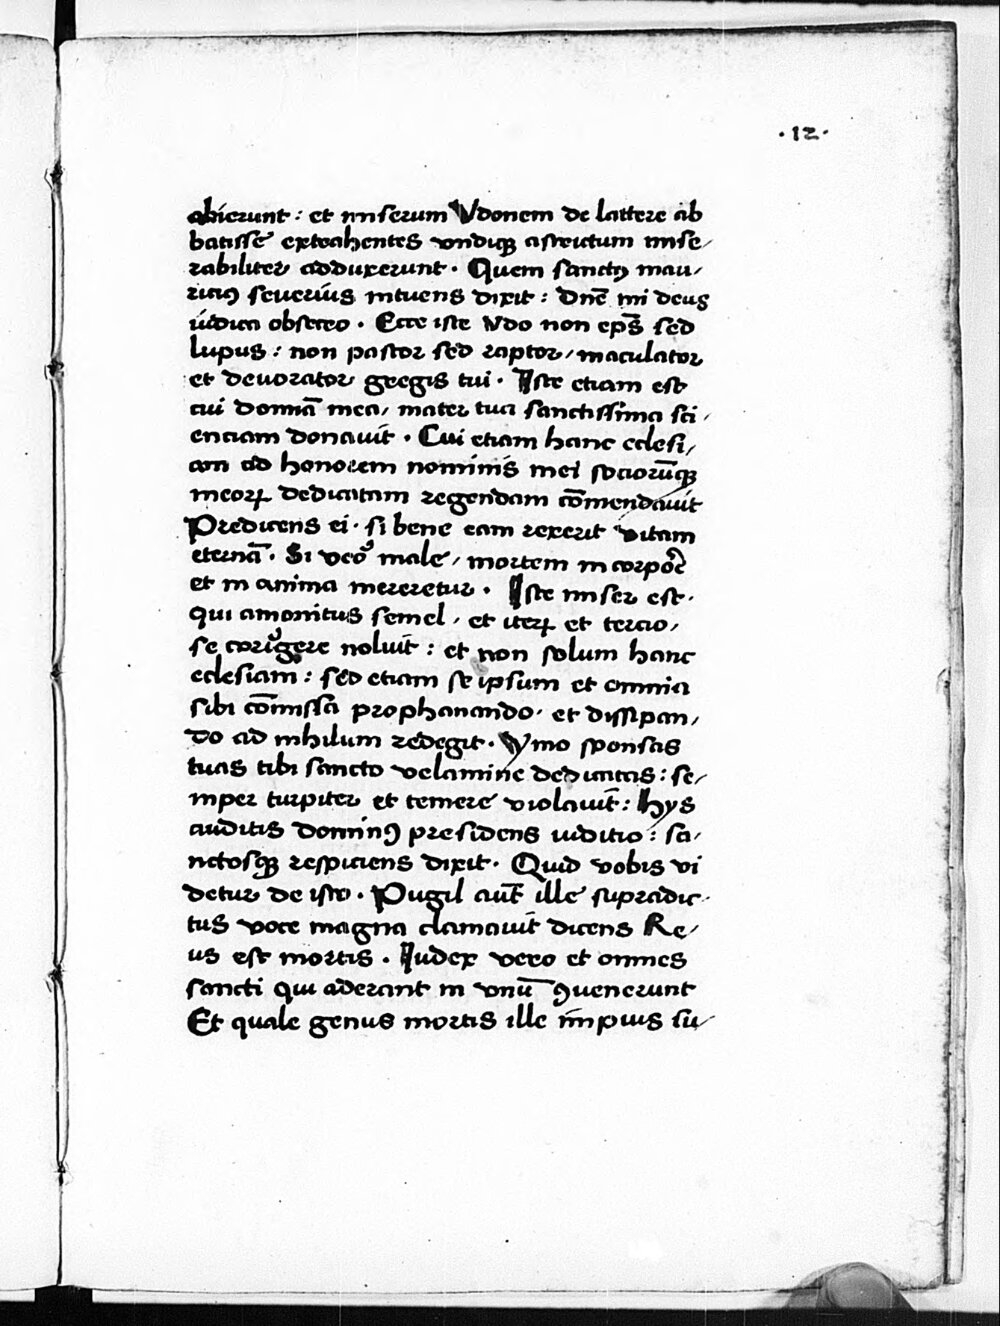 ·12·
abierunt : et miserum Vdonem de lattere ab
batisse extrahentes vndiqꝫ astrictum mise⸝
rabiliter adduxerunt · Quem sanctꝰ mau⸝
riciꝰ seuerius intuens dixit : Dnē mi deus
iudica obsecro · Ecce iste vdo non ep̄s sed
lupus : non pastor sed raptor⸝ maculator
et deuorator gregis tui · Iste etiam est
cui domīa mea⸝ mater tua sanctissima sci⸝
enciam donauit · Cui etiam hanc eclesi⸝
am ad honorem nominis mei sociorūqꝫ
meorꝝ dedicatam regendam cōmendauit
Predicens ei · si bene eam rexerit vitam
eternā · Si vero male⸝ mortem in corpore
et in anima mereretur · Iste miser est ·
qui amonitus semel⸝ et iterꝝ et tercio⸝
se corrigere noluit : et non solum hanc
eclesiam : sed etiam se ipsum et omnia
sibi cōmissa prophanando · et dissipan⸝
do ad nihilum redegit · Ymo sponsas
tuas tibi sancto velamine dedicatas : se⸝
mper turpiter et temere violauit : hys
auditis dominꝰ presidens iuditio : sa⸝
nctosqꝫ respiciens dixit · Quid vobis vi
detur de isto · Pugil aut̄ ille supradic⸝
tus voce magna clamauit dicens Re⸝
us est mortis · Iudex vero et omnes
sancti qui aderant in vnū ꝯuenerunt
Et quale genus mortis ille impius su⸝